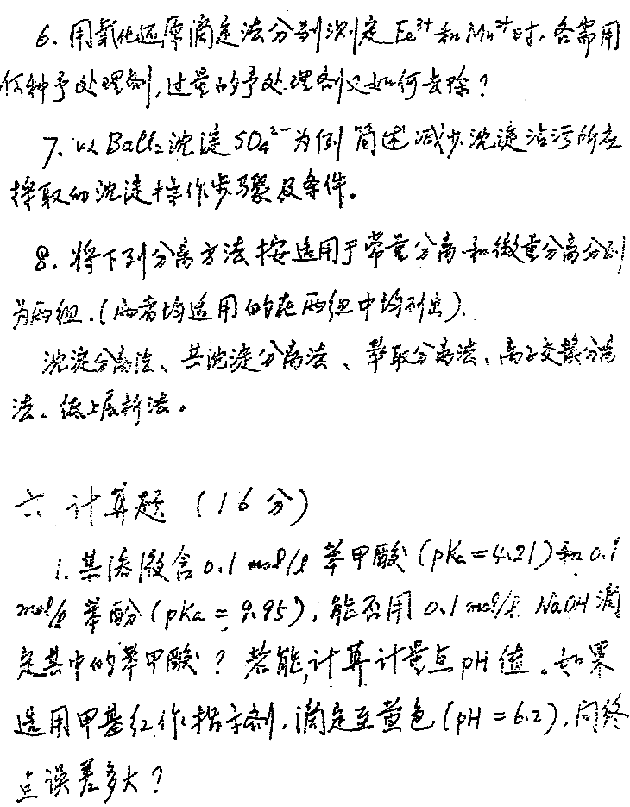 6. 用氧化还原滴定法分别测定Fe³⁺和Mn²⁺时,各需用
何种予处理剂,过量的予处理剂又如何去除?
7. 以BaCl₂沈淀SO₄²⁻为例简述减少沈淀沾污所应
採取的沈淀操作步骤及条件。
8. 将下列分离方法按适用于常量分离和微量分离分别
为两组.(两者均适用的在两组中均列出).
沈淀分离法、共沈淀分离法、萃取分离法、离子交换分离
法、纸上层析法。
六 计算题 (16分)
1. 某溶液含0.1 mol/l 苯甲酸 (pKa=4.21)和0.1
mol/l 苯酚(pKa = 9.95),能否用0.1 mol/l NaOH滴
定其中的苯甲酸?若能,计算计量点pH值。如果
选用甲基红作指示剂,滴定至黄色(pH=6.2),问终
点误差多大?